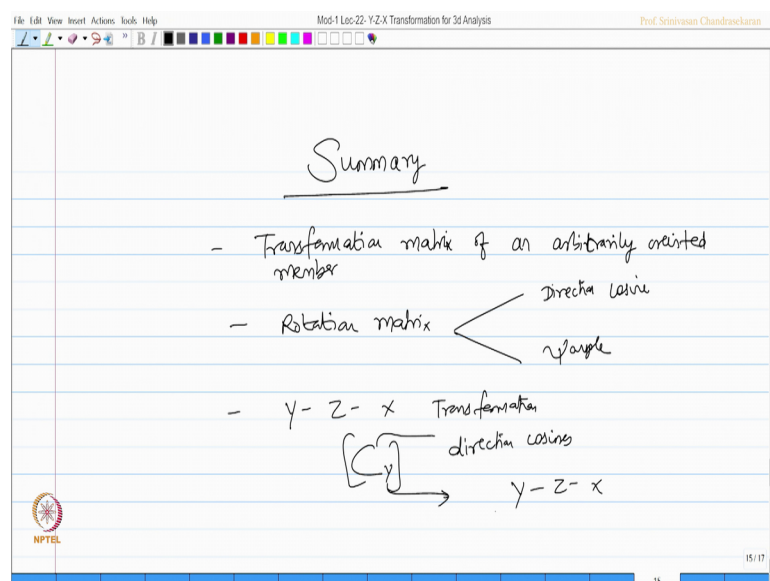 File Edit View Insert Actions Tools Help
Mod-1 Lec-22- Y-Z-X Transformation for 3d Analysis
Prof. Srinivasan Chandrasekaran
B I
Summary
- Transformation matrix of an arbitrarily oriented
member
Direction cosine
- Rotation matrix
ψ angle
- Y - Z - X Transformation
direction cosines
[Cy]
Y - Z - X
NPTEL
15 / 17